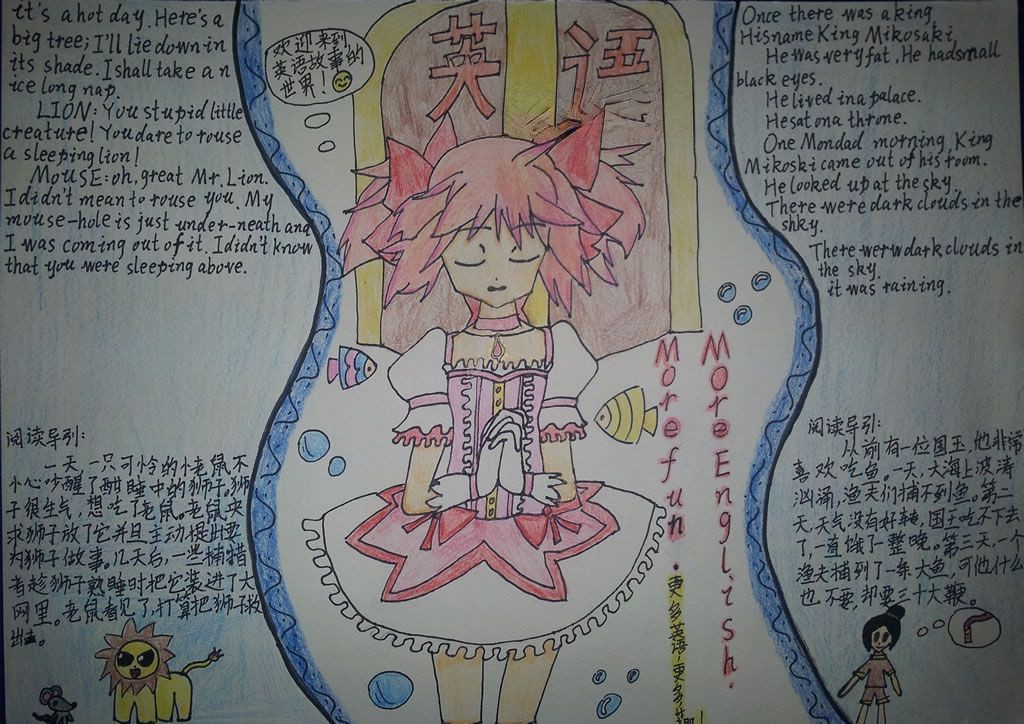 it's a hot day. Here's a
big tree; I'll lie down in
its shade. Ishall take a n
ice long nap.
LION: You stupid little
creature! You dare to rouse
a sleeping lion!
MousE: oh, great Mr. Lion.
I didn't mean to rouse you. My
mouse-hole is just under-neath and
I was coming out of it. I didn't know
that you were sleeping above.
阅读导引:
一天,一只可怜的小老鼠不
小心吵醒了酣睡中的狮子。狮
子很生气,想吃了老鼠。老鼠央
求狮子放了它并且主动提出要
为狮子做事。几天后,一些捕猎
者趁狮子熟睡时把它装进了大
网里。老鼠看见了,打算把狮子救
出去。
欢迎来到
英语故事的
世界!
英语
More English.
More fun.
更多英语,更多
Once there was a king.
Hisname King Mikosaki.
He was very fat, He hadsmall
black eyes.
He lived ina palace.
Hesat on a throne.
One Mondad morning, King
Mikoski came out of his room.
He looked up at the sky.
There were dark clouds in the
shky.
There werw dark clouds in
the sky.
it was raining.
阅读导引:
从前有一位国王,他非常
喜欢吃鱼。一天,大海上波涛
汹涌,渔夫们捕不到鱼。第二
天,天气没有好转,国王吃不下去
了,一直饿了一整晚。第三天,一个
渔夫捕到了一条大鱼,可他什么
也不要,却要三十大鞭。